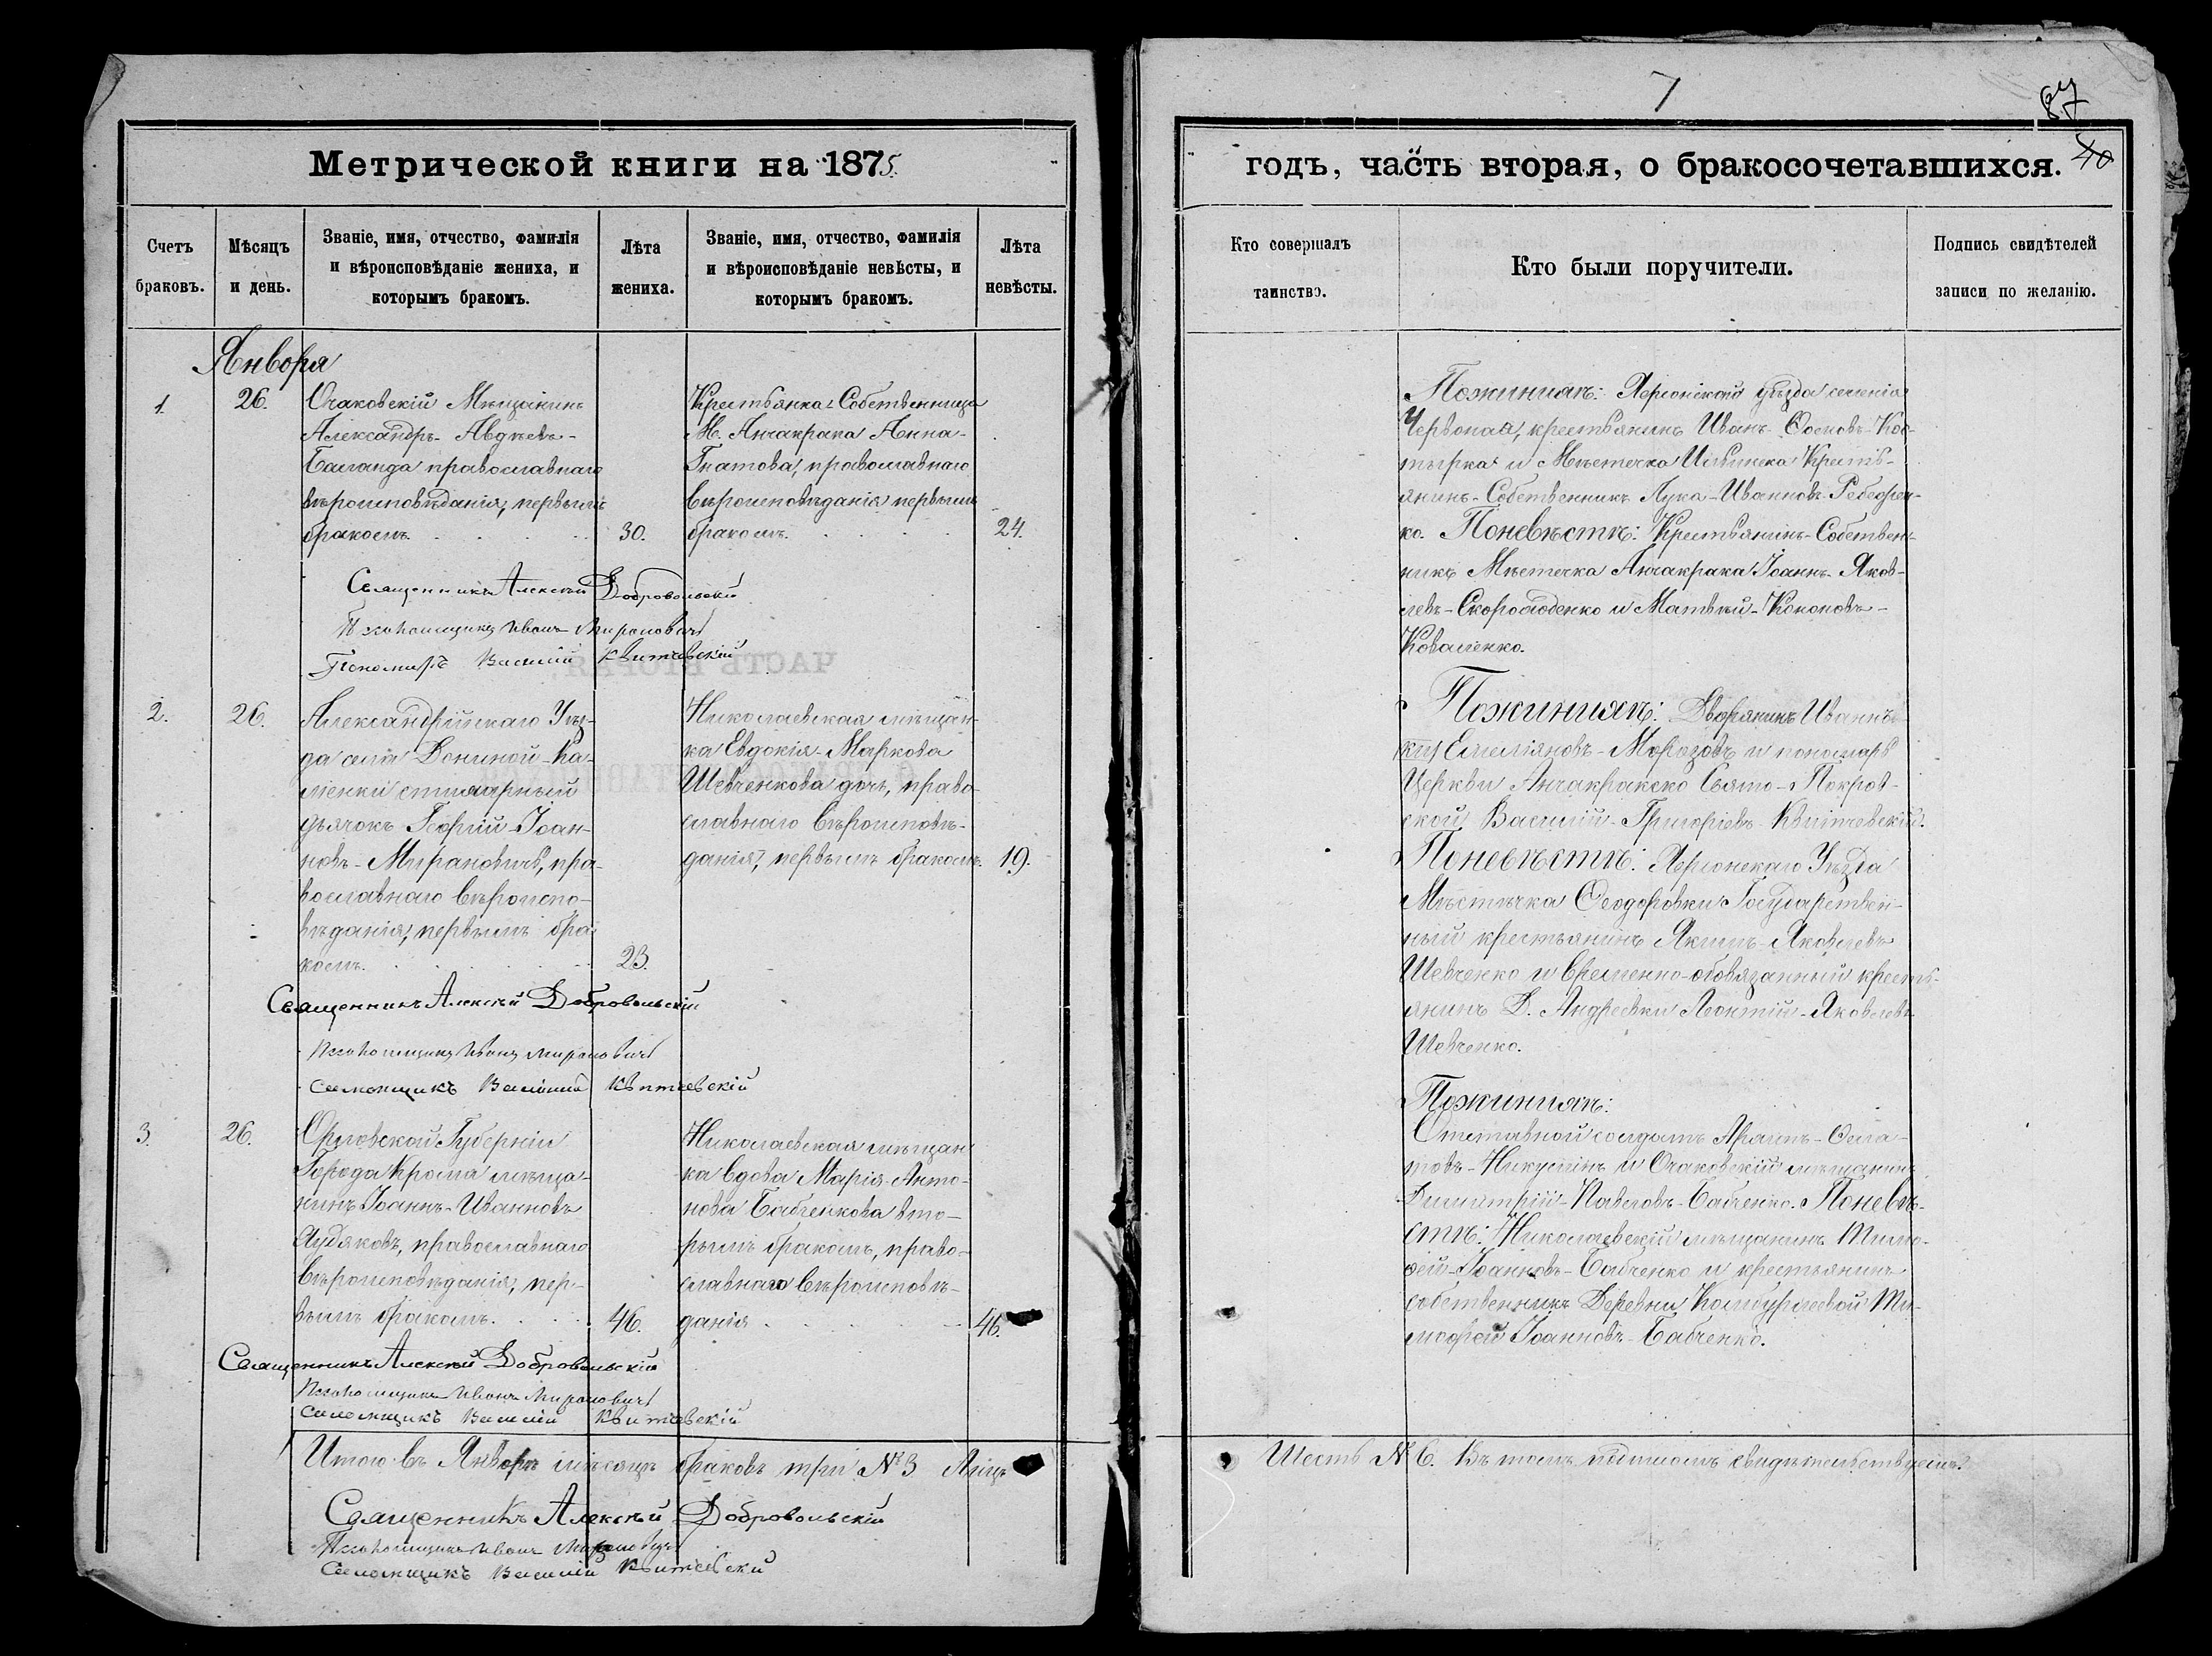 7
87
40
Метрической книги на 1875.
годъ, часть вторая, о бракосочетавшихся.
Счетъ браковъ.
Мѣсяцъ и день.
Званіе, имя, отчество, фамилія и вѣроисповѣданіе жениха, и которымъ бракомъ.
Лѣта жениха.
Званіе, имя, отчество, фамилія и вѣроисповѣданіе невѣсты, и которымъ бракомъ.
Лѣта невѣсты.
Кто совершалъ таинство.
Кто были поручители.
Подпись свидѣтелей записи по желанію.
Января
1.
26.
Очаковскій Мѣщанинъ
Александръ Авдѣевъ
православнаго
вѣроисповѣданія, первымъ
бракомъ.
30.
Крестьянка-Собственница
М. Анчакрака Анна
Гнатова, православнаго
вѣроисповѣданія первымъ
бракомъ.
24.
Священникъ Алексѣй Добровольскій
Псаломщикъ Иванъ Мироновичъ
Пономарь Василій Квитчевскій
По женихѣ: Херсонскаго уѣзда селенія
крестьянинъ Иванъ Осиповъ Кос-
тырка и Мѣстечка Ильинска Кресть-
янинъ-Собственникъ Лука Ивановъ
ко. По невѣстѣ: Крестьянинъ-Собствен-
никъ Мѣстечка Анчакрака Іоаннъ Яков-
левъ-Скороходенко и Матвѣй-Кононовъ-
Коваленко.
2.
26.
Александрійскаго Уѣз-
да села Дониной-Ка-
менки
дьячокъ Георгій Іоан-
новъ-Мирановичъ, пра-
вославнаго вѣроиспо-
вѣданія, первымъ бра-
комъ.
23.
Николаевская мѣщан-
ка Евдокія Маркова
Шевченкова дочь, право-
славнаго вѣроисповѣ-
данія, первымъ бракомъ.
19.
Священникъ Алексѣй Добровольскій
Псаломщикъ Иванъ Мироновичъ
Псаломщикъ Василій Квитчевскій
По женихѣ: Дворянинъ
Емеліяновъ-Морозовъ и пономарь
Церкви Анчакракско Свято-Покров-
ской Василій-Григоріевъ Квитчевскій.
По невѣстѣ: Херсонскаго Уѣзда
Мѣстечка Ѳеодоровки Государствен-
ный крестьянинъ Якимъ-Яковлевъ
Шевченко и временно-обовязанный кресть-
янинъ Д. Андреевки Леонтій-Яковлевъ
Шевченко.
3.
26.
Орловской Губерніи
Города Крома мѣща-
нинъ Іоаннъ-Ивановъ
православнаго
вѣроисповѣданія, пер-
вымъ бракомъ.
46.
Николаевская мѣщан-
ка вдова Марія Анто-
нова Бабченкова вто-
рымъ бракомъ, право-
славнаго вѣроисповѣ-
данія
46.
Священникъ Алексѣй Добровольскій
Псаломщикъ Иванъ Мироновичъ
Псаломщикъ Василій Квитчевскій
По женихѣ:
Отставной солдатъ
Никулинъ и Очаковскій мѣщанинъ
Димитрій-Павловъ-Бабченко. По невѣ-
стѣ: Николаевскій мѣщанинъ Тимо-
ѳей-Іоанновъ-Бабченко и крестьянинъ
собственникъ Деревни Ти-
мофей Іоанновъ-Бабченко.
Итого въ Январѣ мѣсяцѣ браковъ три №3 Лицъ
Шесть №6. Въ томъ подписомъ свидѣтельствуемъ.
Священникъ Алексѣй Добровольскій
Псаломщикъ Иванъ Мироновичъ
Псаломщикъ Василій Квитчевскій